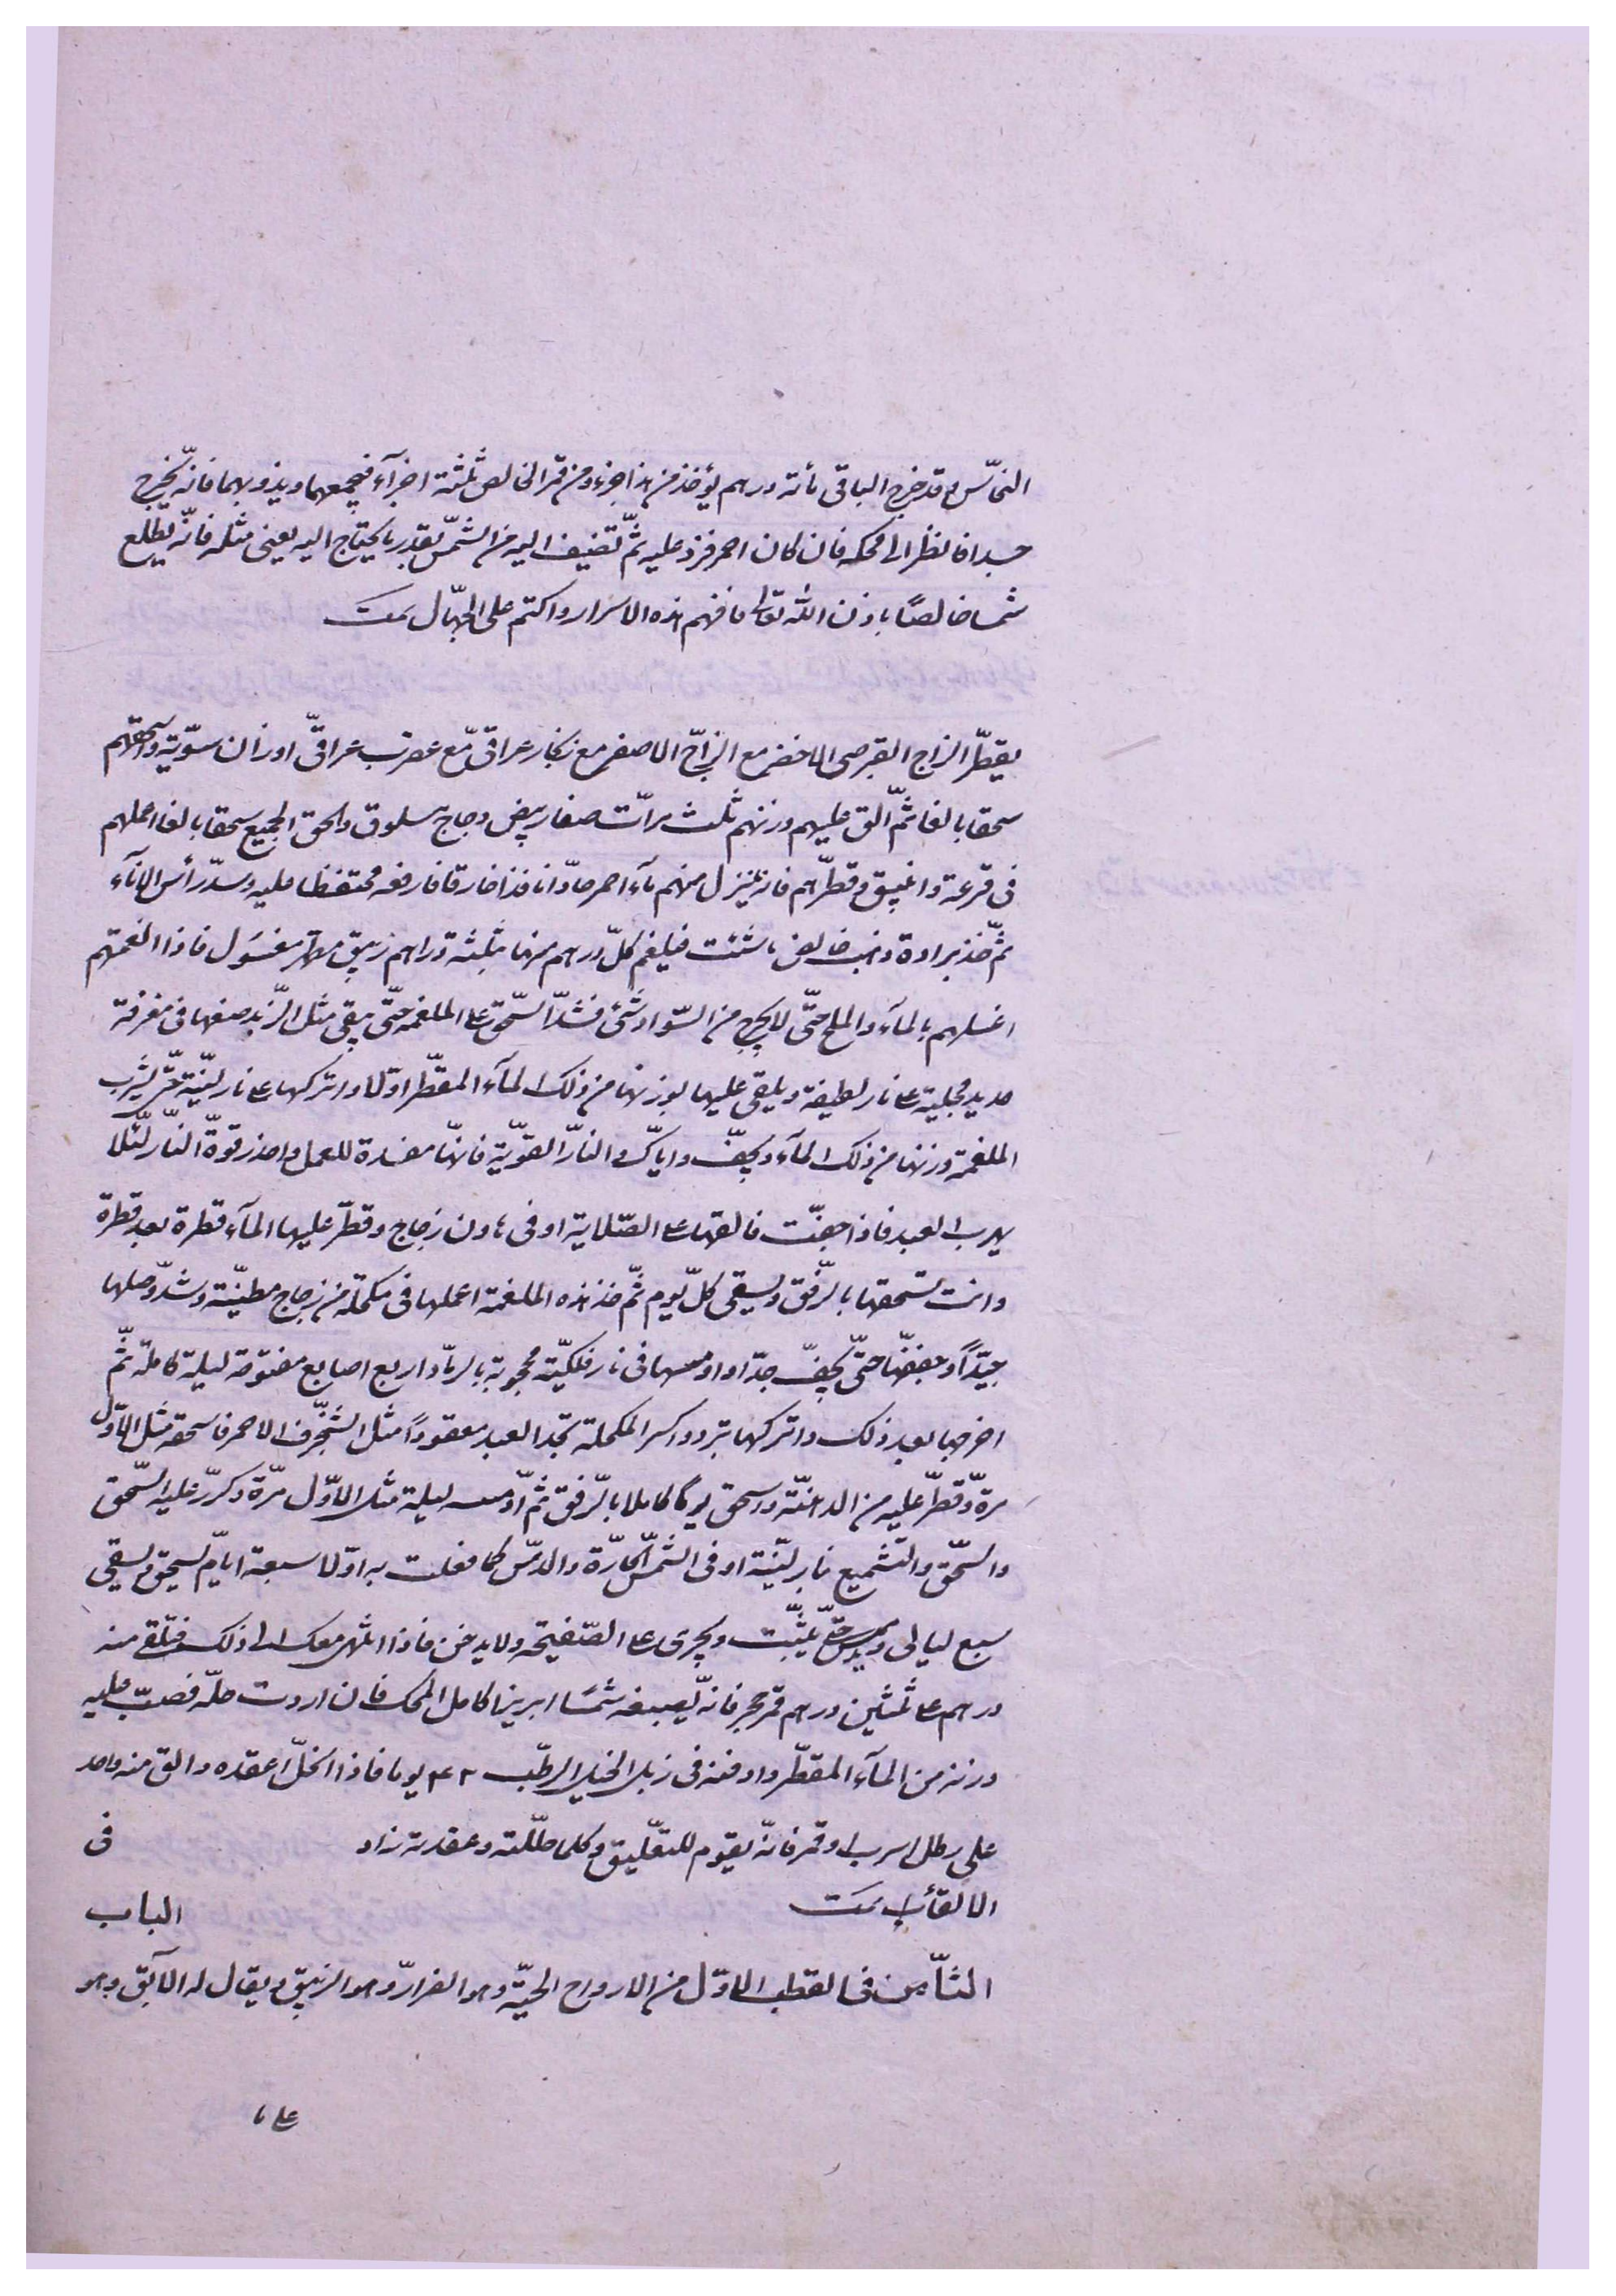 النحّس وقد خرج الباقى مأته درهم يؤخذ من هذا جزء ومن قمر الخالص ثلثة اجزآء فيجمعهما ويذوبهما فانّه يخرج
جسدا فانظر الى محكه فان كان احمر فزد عليه ثمّ تضيف اليه من الشمّس بقدر ما يحتاج اليه يعنى مثله فانّه يطلع
شمسا خالصًا باذن الله تعالى فافهم هذه الاسرار واكتم على الجهّال تمت
يقطّر الزاج القبرصى الاخضر مع الزاجّ الاصفر مع زنجار عراقىّ مع عقرب عراقىّ اوزان سوّية واسحقهم
سحقا بالغا ثمّ الق عليهم وزنهم ثلث مرّات صفار بيض دجاج مسلوق والحق الجميع سحقا بالغا اعملهم
فى قرعة وانبيق وقطّرهم فانه ينزل منهم مآء احمر حادّا نافذا خارقا فارفعه محتفظا عليه وسدّ رأس الانآء
ثمّ خذ برادة ذهب خالص ما شئت فيلغم كلّ درهم منها بثلثة دراهم زيبق مطهر مغسول فاذا الغمتهم
اغسلهم بالمآء والملح حتّى لا يخرج من السّواد شئ فشدّ السّحق على الملغمه حتّى يبقى مثل الزّبد صفها فى مغرفة
حديد مجلية على نار لطيفة ويلقى عليها بوزنها من ذلك المآء المقطّر اوّلا واتركها على نار ليّنة حتّى يشرب
الملغمة وزنها من ذلك المآء ويجفّ واياكّ والنارّ القوّية فانهّا مفسدة للعمل واحذر قوةّ النّار لئلّا
يهرب العبد فاذا جفّت فالقها على الصّلاية او فى هاون زجاج وقطّر عليها المآء قطرة بعد قطرة
وانت تسحقها بالرّفق ويسقى كلّ يوم ثمّ خذ هذه الملغمة اعملها فى مكحلة من زجاج مطيّنة وشدّ وصلها
جيّدًا وجففّها حتّى يجفّ جدّا وادمسها فى نار فلكيّة محجوبة بالرمّاد اربع اصابع مفتوحة ليلة كاملة ثمّ
اخرجها بعد ذلك واتركها تبرد واكسر المكحلة تجد العبد معقودًا مثل الشنّجرف الاحمر فاسحقه مثل الاوّل
مرةّ وقطّر عليه من الدهنّة واسحق يوما كاملا بالرّفق ثمّ ادمسه ليلة مثل الاوّل مرّة وكرّر عليه السّحق
والسّحق والتّشميع نار ليّنة او فى الشمّس الحارّة والدمّس كما فعلت به اوّلا سبعة ايّام يسحق ويسقى
سبع ليالى ويدمس حتّى يثبّت ويجرى على الصّفيحة ولا يدخن فاذا انتهى معك الى ذلك فتلقى منه
درهم على ثلثين درهم قمر حجر فانهّ يصبغه شمسًا ابريزا كامل المحك فان اردت حلّه فصبّ عليه
وزنه من المآء المقطّر وادفنه فى زبل الخيل الرطّب ٤٢ يوما فاذا انحلّ اعقده والق منه واحد
على رطل اسرب او قمر فانهّ يقوم للتعلّيق وكلما حللّته وعقدته زاد فى
الالقآء تمت الباب
الثاّمن فى القطب الاوّل من الارواح الحيّة وهو الفرارّ وهو الزيبق ويقال له الآبق وهو
على ما